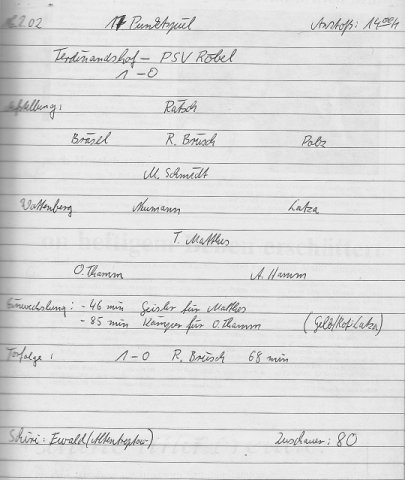 2.02 17 Punktspiel Anstoß: 14⁰⁰h
Ferdinandshof – PSV Röbel
1 – 0
Aufstellung: Ratsch
R. Brüsch Polz
M. Schmidt
Wottenberg Neumann Latza
T. Matthes
O. Thamm A. Hamm
Einwechslung: - 46 min Geisler für Matthes
- 85 min Kämper für O. Thamm (Gelb/Rot: Latza)
Torfolge: 1 – 0 R. Brüsch 68 min
Schiri: Ewald (Altentreptow) Zuschauer: 80